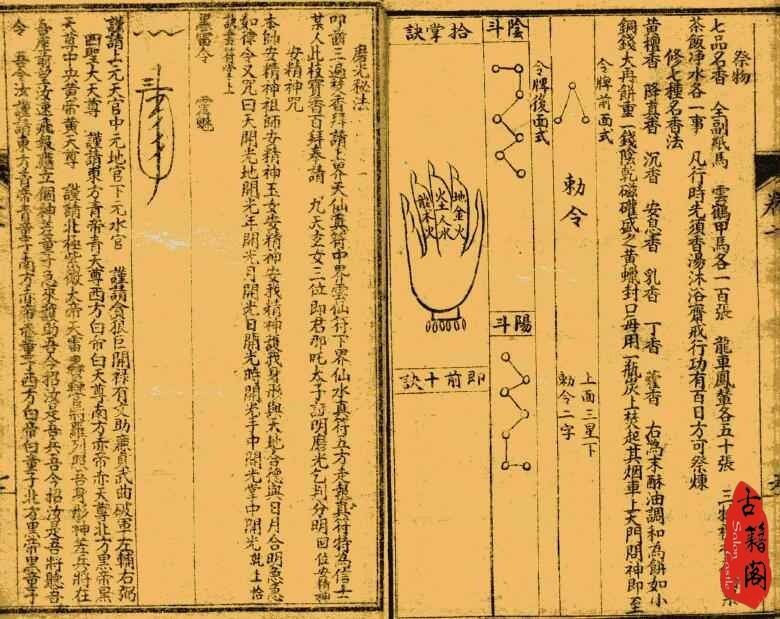 祭物
七品名香　全副紙馬　雲鶴甲馬各一百張　龍車鳳輦各五十張　三
茶飯淨水各一事　凡行時先須香湯沐浴齋戒行功有百日方可祭煉
修七種名香法
黃檀香　降真香　沉香　安息香　乳香　丁香　藿香　右為末酥油調和為餅如小
銅錢大再餅重一錢陰乾磁礶盛之黃蠟封口每用一瓶炭上焚起其烟車上天門閤神即至
令牌前面式
勅令
上面三星下
勅令二字
令牌後面式
陰斗
陽斗
拾掌訣
地金火
火土人水
龍木火
即前十訣
磨光秘法
叩前三遍焚香拜請上界天仙真符中界雲仙行下界仙水真符五方走報真符特為信士
某人此枝寶香百拜奉請　九天玄女三位即君那吒太子證明磨光乞判分明回位安精神
安精神咒
本師安精神祖師安精神玉女安精神安我精神護我身形與天地合德與日月合明急急
如律令又咒曰天開光地開光年開光月開光日開光時開光手中開光掌中開光乾上拾
訣書符掌上
黑雷令　雲魁
謹請上元天官中元地官下元水官　謹請貪狼巨門祿存文助廉貞武曲破軍左輔右弼
四聖大天尊　謹請東方青帝青天尊西方白帝白天尊南方赤帝赤天尊北方黑帝黑
天尊中央黃帝黃天尊　謹請北極紫微大帝天雷
吾座前
令　吾令汝謹請東方青帝青童子南方赤帝赤童子西方白帝白童子北方黑帝黑童子
古籍阁